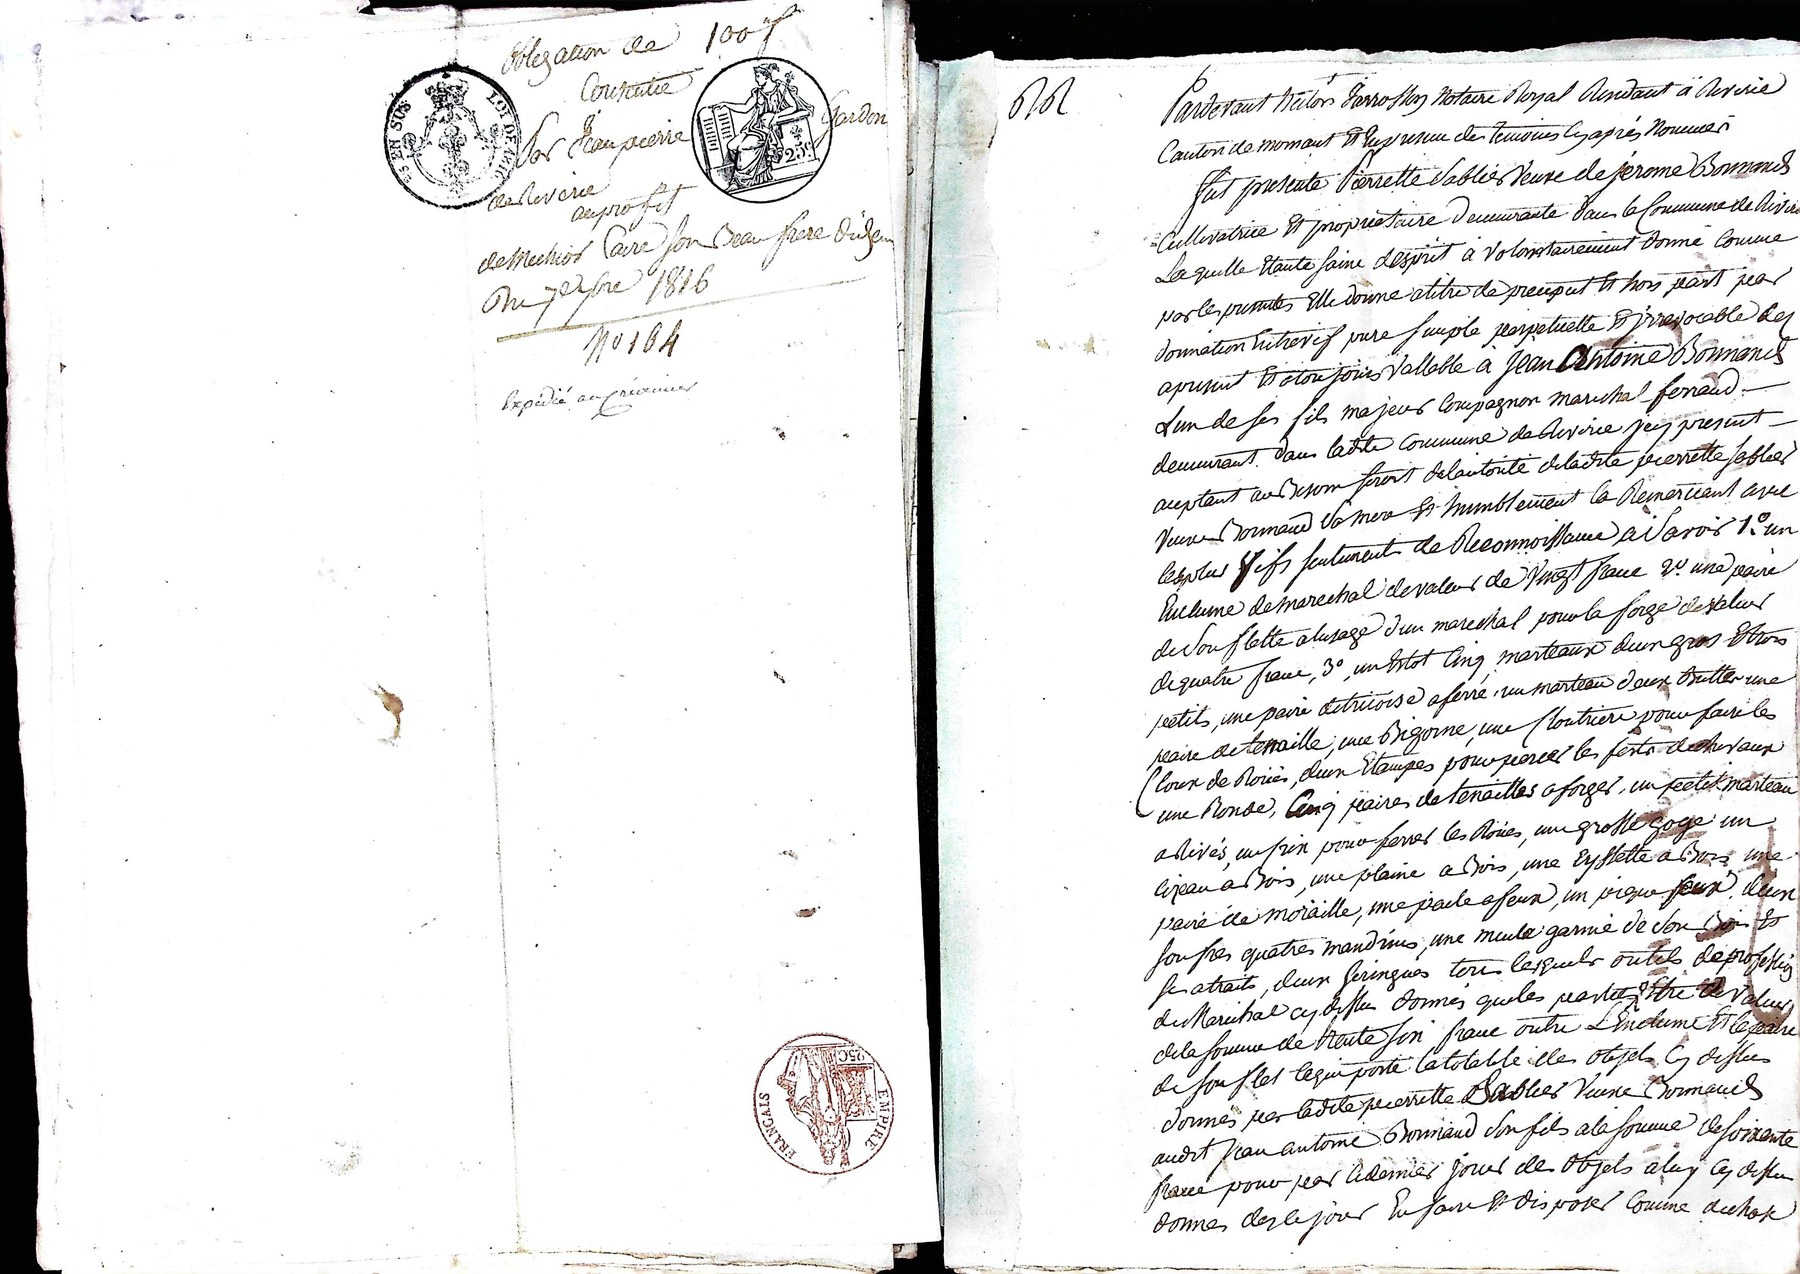 obligation de 100 f
Consentie
Par Jean pierre Gardon
de Riverie
au profit
de Melchior Caire son Beau frere dudem
Du 7 1816
N° 164
Expédié au créancier
ES EN SUS
LOI DE
25c
EMPIRE
FRANÇAIS
25C
Pardevant Notaire Royal Residant à Riverie
Canton de mornant Et En presence des temoins Cy après Nommés
fut presente Pierrette Sablier Veuve de jerome Bonnand
Cultivatrice Et propriétaire demeurante dans la Commune de Riverie
Laquelle Etante saine desprit à volontairement donné Comme
par les presentes Elle donne a titre de preciput Et hors part par
donnation Entrevif pure simple perpetuelle Et irrevocable des
apresent Et atoujours Vallable a Jean Antoine Bonnand
Lun de ses fils majeur Compagnon marechal ferrand
demeurant dans ladite Commune de Riverie icy present
acceptant au Besoin soit delautorité deladite pierrette sablier
Veuve Bonnand Sa mere Et humblement la Remerciant avec
les plus Vifs sentiments de Reconnoissance a Savoir 1° un
Enclume de marechal de valeur de Vingt franc 2° une paire
de Soufflette alusage dun marechal pour la forge de valeur
de quatre franc, 3°, un Cinq marteaux deux gros Et trois
petits, une paire detricoise a ferré un marteau deux une
paire de tenaille, une Bigorne, une Cloutriere pour faire les
Cloux de Roües, deux Etampes pour percer les fers de chevaux
une Ronde, Cinq paires de tenailles a forger, un petit marteau
a Rivés, un pour ferrer les Roües, une grosse goge un
Cizeau a Bois, une plaine a Bois, une a Bois, une
paire de moraille, une paile a feux, un pique feux, deux
quatres mandrins, une meule garnie de Son Bois Et
ses atraits, deux Seringues tous lesquels outils de profession
de Marechal cy dessus donnés que les parties Etre de Valeur
de la somme de trente six franc outre LEnclume Et la paire
de Soufflet Ce qui porte la totalité des objets Cy dessus
donnés par ladite pierrette Sablier Veuve Bonnand
audit Jean antoine Bonnand Son fils a la somme de soixante
franc pour par Ce dernier jouir des objets a luy Cy dessus
donnes des Ce jour En faire Et disposer Comme de chose